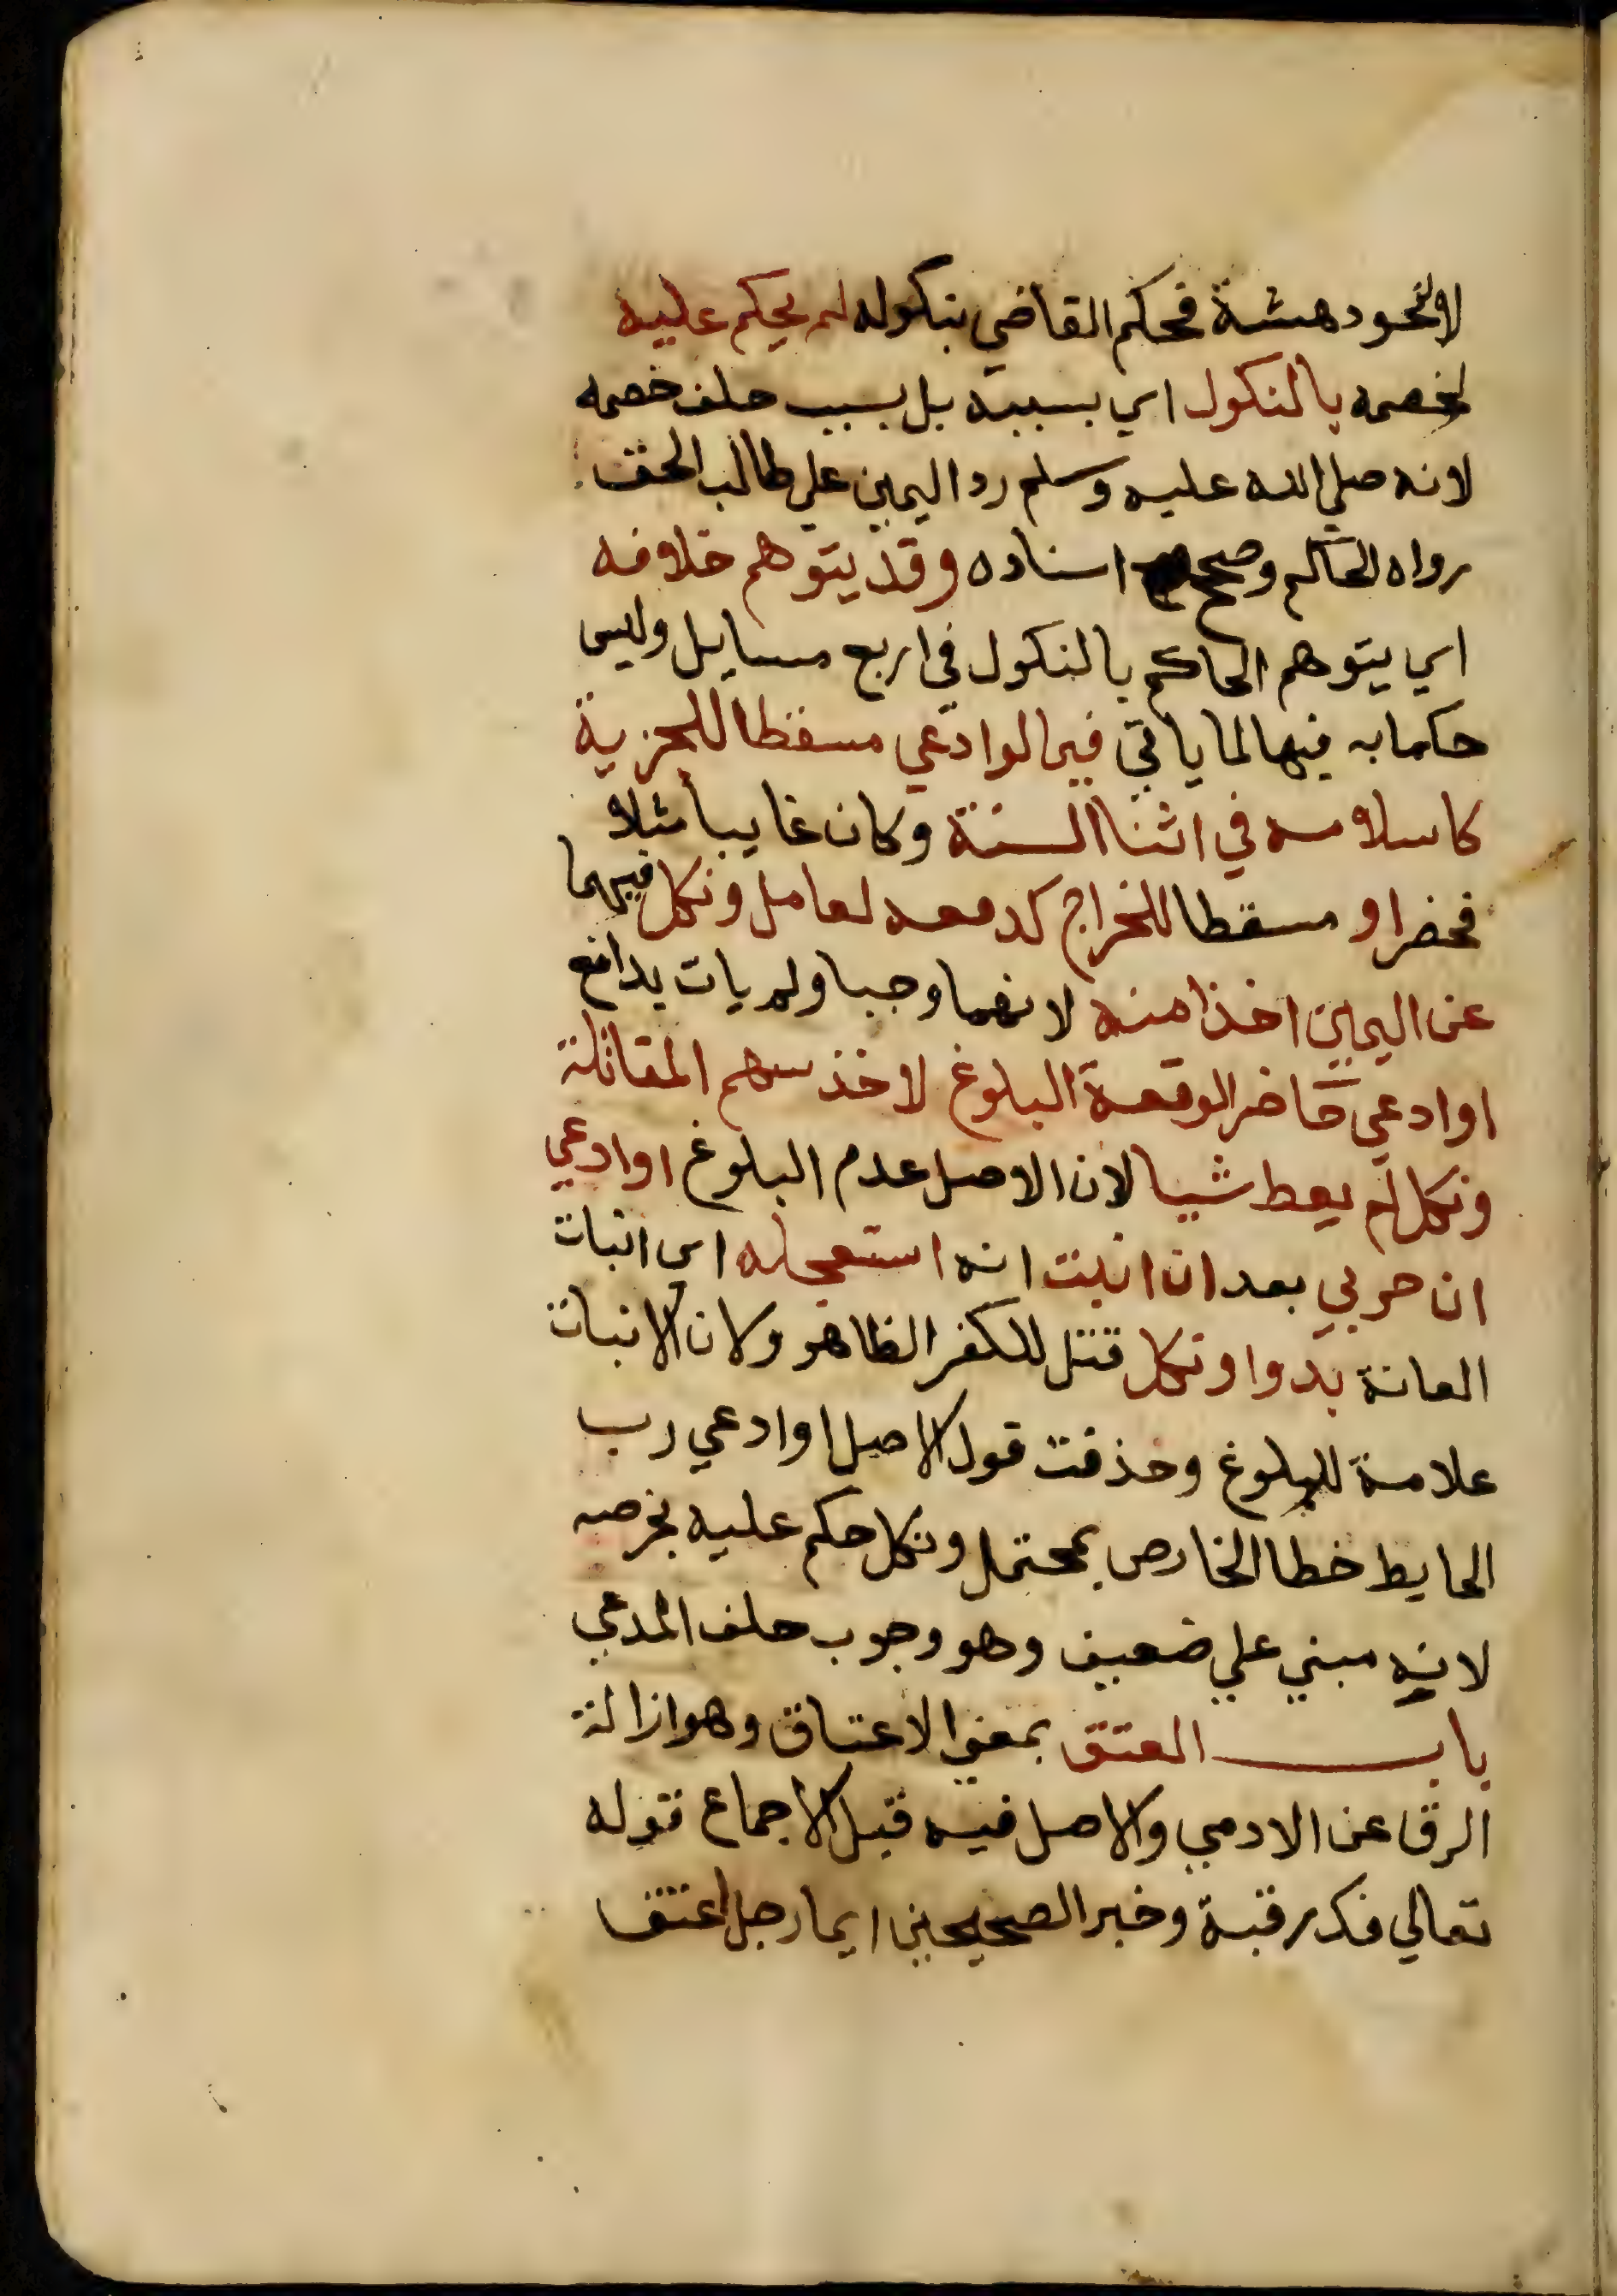 لا لنحو دهشة فحكم القاضي بنكوله لم يحكم عليه
لخصمه بالنكول اي بسببه بل بسبب حلف خصمه
لانه صلي الله عليه وسلم رد اليمين علي طالب الحق
رواه الحاكم وصحح اسناده وقد يتوهم خلافه
اي يتوهم الحاكم بالنكول في اربع مسايل وليس
حكما به فيها لما ياتي فيما لو ادعي مسقطا للجزية
كاسلامه في اثنا السنة وكان غايبا مثلا
فحضر او مسقطا للخراج كدفعه لعامل ونكل فيهما
عن اليمين اخذا منه لانهما وجبا ولم يات بدافع
او ادعي حاضر الوقعة البلوغ لاخذ سهم المقاتلة
ونكل لم يعط شيا لان الاصل عدم البلوغ او ادعي
ان حربي بعد ان انبت انه استعجله اي انبات
العانة بدوا ونكل قتل للكفر الظاهر ولان الانبات
علامة للبلوغ وحذفت قول الاصل او ادعي رب
الحايط خطا الخارص بمحتمل ونكل حكم عليه بخرصه
لانه مبني علي ضعيف وهو وجوب حلف المدعي
باب العتق بمعني الاعتاق وهو ازالة
الرق عن الادمي والاصل فيه قبل الاجماع قوله
تعالي فك رقبة وخبر الصحيحين ايما رجل اعتق